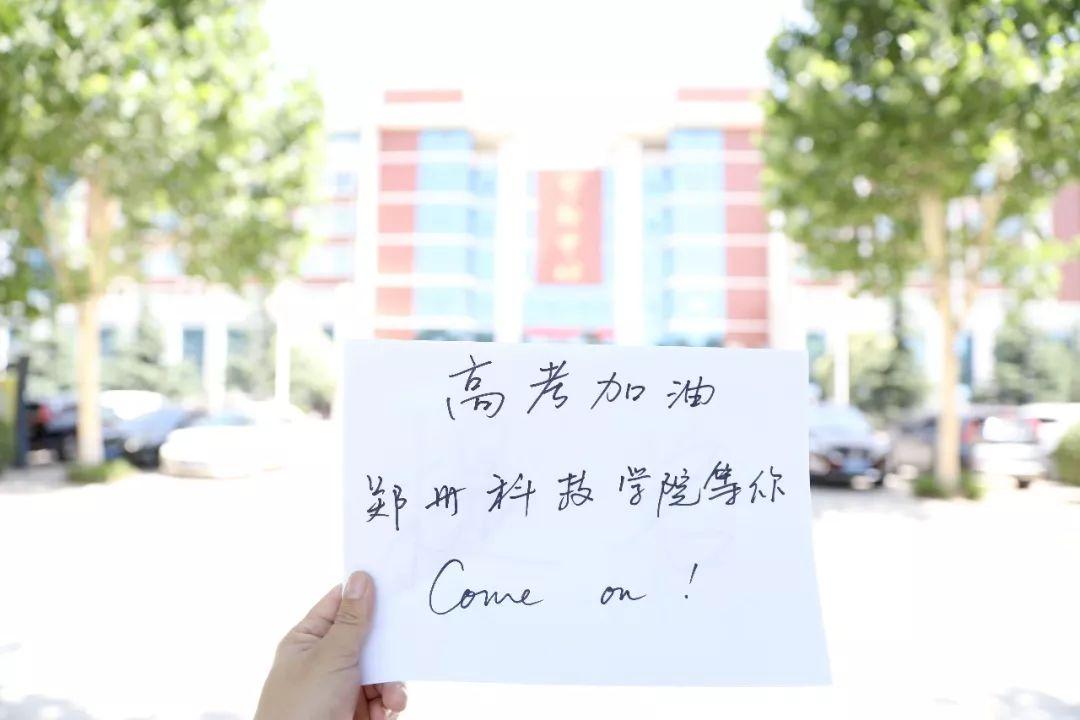 高考加油
郑州科技学院等你
Come on!